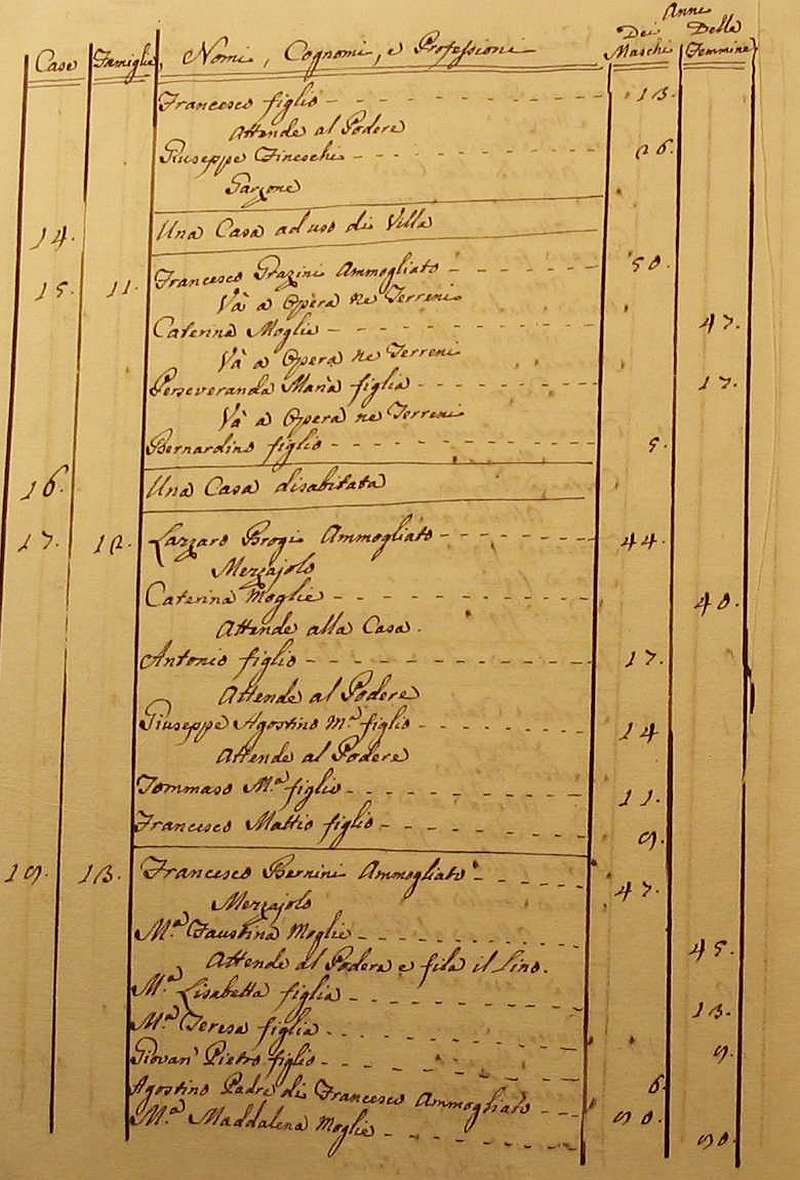 Anni
Case Famiglie, Nomi, Cognomi, e Professioni Dei Maschi Delle Femmine
Francesco figlio 13.
Attende al Podere
Giuseppe Fineschi 26.
Garzone
14. Una Casa ad uso di Villa
15. 11. Francesco Grazini Ammogliato 50.
Và a Opera ne Terreni
Caterina Moglie 47.
Và a Opera ne Terreni
Perseveranda Maria figlia 17.
Và a Opera ne Terreni
Bernardino figlio 5.
16. Una Casa disabitata
17. 12. Lazzaro Brogi Ammogliato 44.
Mezzajolo
Caterina Moglie 40.
Attende alla Casa.
Antonio figlio 17.
Attende al Podere
Giuseppe Agostino Mª figlio 14
Attende al Podere
Tommaso Mª figlio 11.
Francesco Mattio figlio 9.
19. 13. Francesco Bernini Ammogliato 47.
Mezzajolo
Mª Faustina Moglie 45.
Attende al Podere e fila il Lino.
Mª Lisabetta figlia 13.
Mª Teresa figlia 9.
Giovan Pietro figlio 6.
Agostino Padre di Francesco Ammogliato 90.
Mª Maddalena Moglie 90.